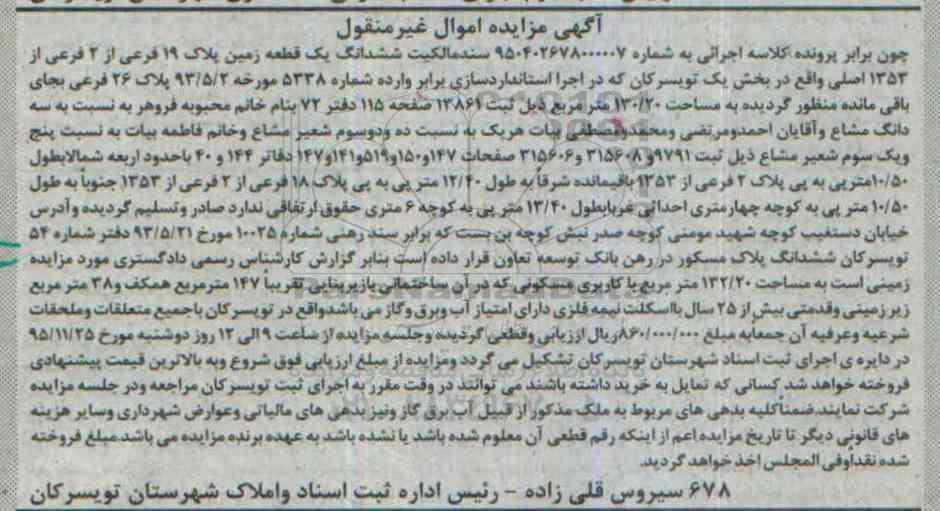 آگهی مزایده اموال غیرمنقول
چون برابر پرونده کلاسه اجرائی به شماره ۹۵۰۴۰۲۶۷۸۰۰۰۰۰۷ سندمالکیت ششدانگ یک قطعه زمین پلاک ۱۹ فرعی از ۲ فرعی از
۱۳۵۳ اصلی واقع در بخش یک تویسرکان که در اجرا استانداردسازی برابر وارده شماره ۵۳۳۸ مورخه ۹۳/۵/۲ پلاک ۲۶ فرعی بجای
باقی مانده منظور گردیده به مساحت ۱۳۰/۲۰ متر مربع ذیل ثبت ۱۳۸۶۱ صفحه ۱۱۵ دفتر ۷۲ بنام خانم محبوبه فروهر به نسبت به سه
دانگ مشاع وآقایان احمدومرتضی ومحمدومصطفی بیات هریک به نسبت ده ودوسوم شعیر مشاع وخانم فاطمه بیات به نسبت پنج
ویک سوم شعیر مشاع ذیل ثبت ۹۷۹۱و ۳۱۵۶۰۸ و۳۱۵۶۰۶ صفحات ۱۴۷و۱۵۰و۵۱۹و۱۴۱و۱۴۷ دفاتر ۱۴۴ و ۴۰ باحدود اربعه شمالابطول
۱۰/۵۰مترپی به پی پلاک ۲ فرعی از ۱۳۵۳ باقیمانده شرقا به طول ۱۲/۴۰ متر پی به پی پلاک ۱۸ فرعی از ۲ فرعی از ۱۳۵۳ جنوباً به طول
۱۰/۵۰ متر پی به کوچه چهارمتری احداثی غربابطول ۱۳/۴۰ متر پی به کوچه ۶ متری حقوق ارتفاقی ندارد صادر وتسلیم گردیده وآدرس
خیابان دستغیب کوچه شهید مومنی کوچه صدر نبش کوچه بن بست که برابر سند رهنی شماره ۱۰۰۲۵ مورخ ۹۳/۵/۲۱ دفتر شماره ۵۴
تویسرکان ششدانگ پلاک مسکور در رهن بانک توسعه تعاون قرار داده است بنابر گزارش کارشناس رسمی دادگستری مورد مزایده
زمینی است به مساحت ۱۳۲/۲۰ متر مربع با کاربری مسکونی که در آن ساختمانی بازیربنایی تقریباً ۱۴۷ مترمربع همکف و۳۸ متر مربع
زیر زمینی وقدمتی بیش از ۲۵ سال بااسکلت نیمه فلزی دارای امتیاز آب وبرق وگاز می باشدواقع در تویسرکان باجمیع متعلقات وملحقات
شرعیه وعرفیه آن جمعابه مبلغ ۸۶۰/۰۰۰/۰۰۰ریال ارزیابی وقطعی گردیده وجلسه مزایده از ساعت ۹ الی ۱۲ روز دوشنبه مورخ ۹۵/۱۱/۲۵
در دایره ی اجرای ثبت اسناد شهرستان تویسرکان تشکیل می گردد ومزایده از مبلغ ارزیابی فوق شروع وبه بالاترین قیمت پیشنهادی
فروخته خواهد شد کسانی که تمایل به خرید داشته باشند می توانند در وقت مقرر به اجرای ثبت تویسرکان مراجعه ودر جلسه مزایده
شرکت نمایند.ضمناًکلیه بدهی های مربوط به ملک مذکور از قبیل آب برق گاز ونیز بدهی های مالیاتی وعوارض شهرداری وسایر هزینه
های قانونی دیگر تا تاریخ مزایده اعم از اینکه رقم قطعی آن معلوم شده باشد یا نشده باشد به عهده برنده مزایده می باشد.مبلغ فروخته
شده نقداًوفی المجلس اخذ خواهد گردید.
۶۷۸ سیروس قلی زاده – رئیس اداره ثبت اسناد واملاک شهرستان تویسرکان